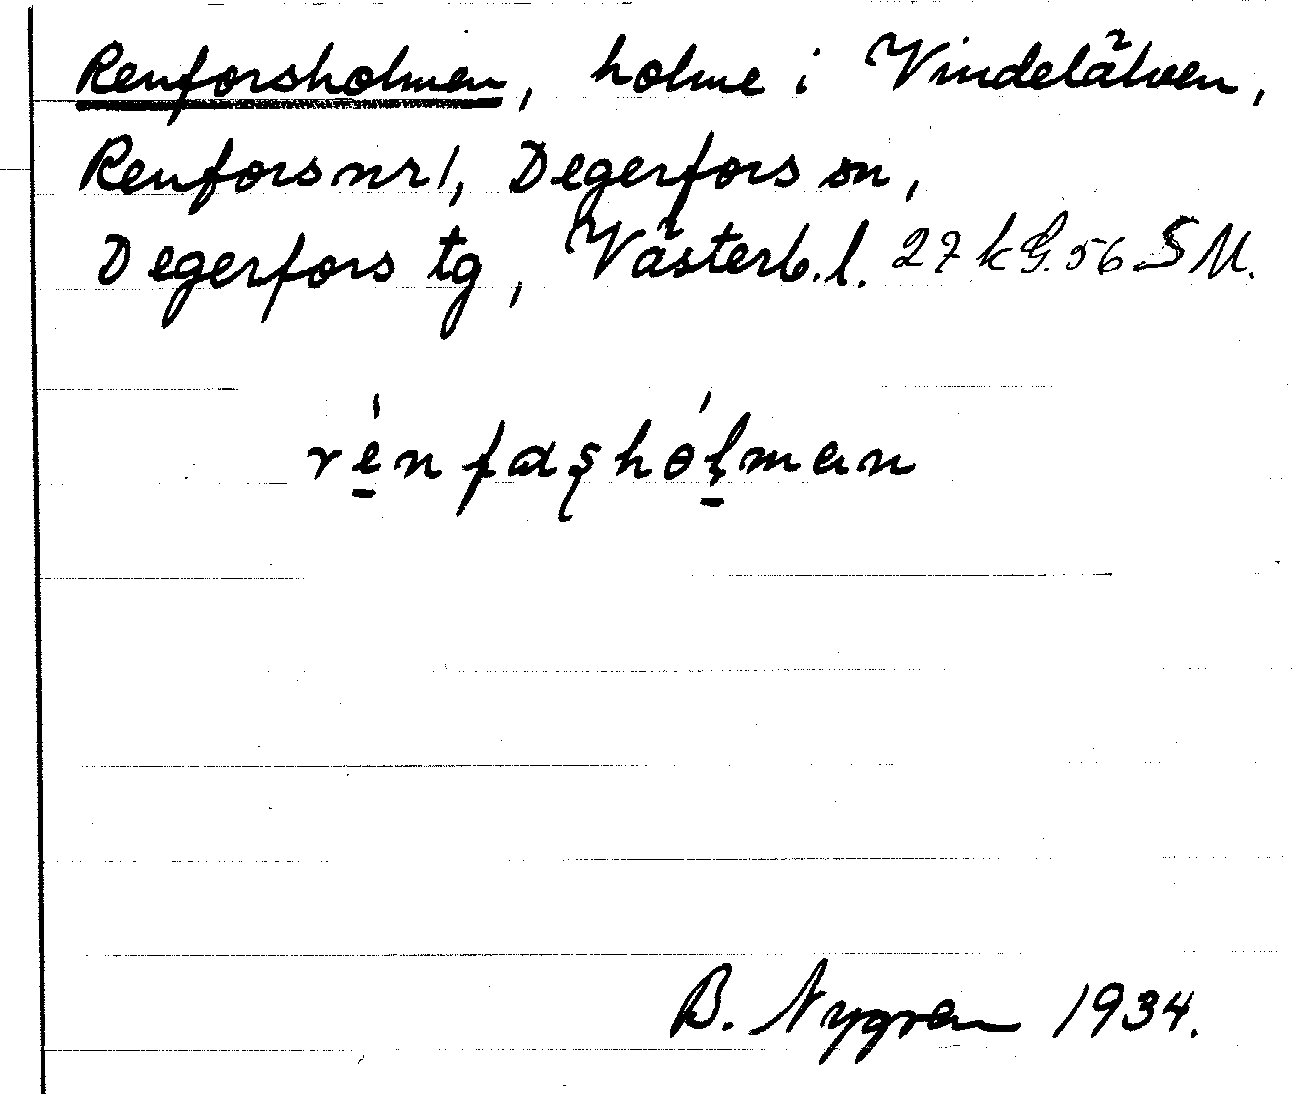 Renforsholmen, holme i Vindelälven,
Renfors nr 1, Degerfors sn,
Degerfors tg, Västerb. l. 27 k G. 56 S M.
rénfɑʂhóḷmɑn
B. Nygren 1934.